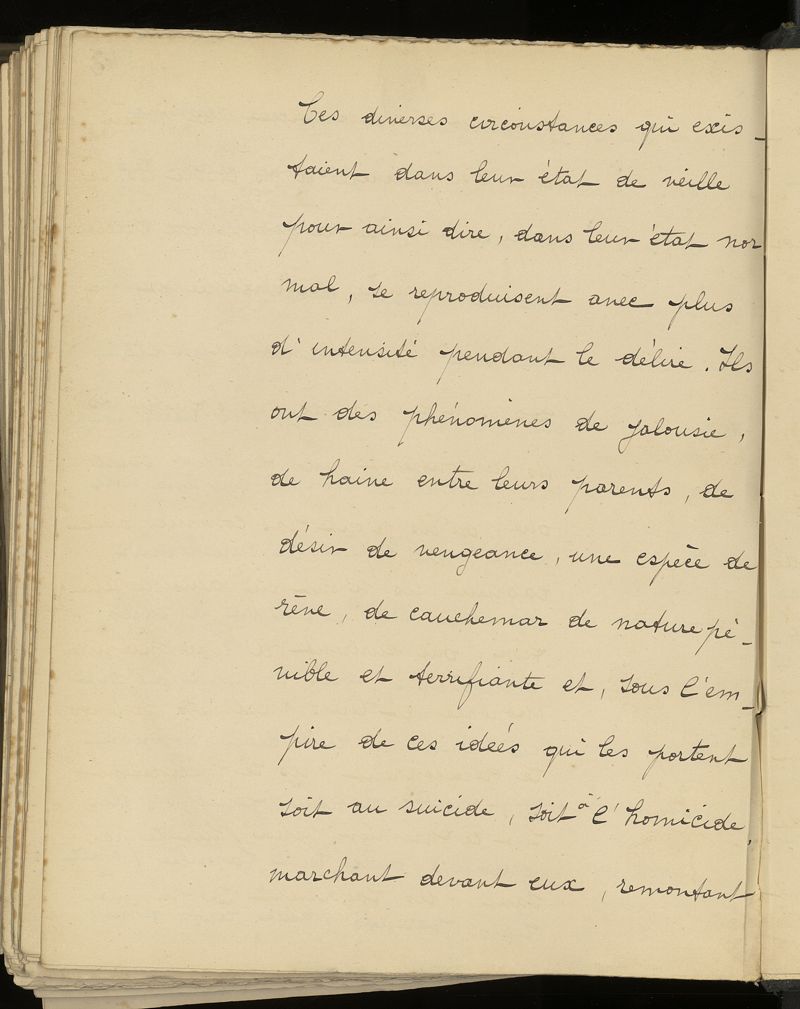 Ces diverses circonstances qui exis-
taient dans leur état de veille
pour ainsi dire, dans leur état nor
mal, se reproduisent avec plus
d'intensité pendant le délire. Ils
ont des phénomènes de jalousie,
de haine entre leurs parents, de
désir de vengeance, une espèce de
rêve, de cauchemar de nature pé-
nible et terrifiante et, sous l'em-
pire de ces idées qui les portent
soit au suicide, soit à l'homicide,
marchant devant eux, remontant